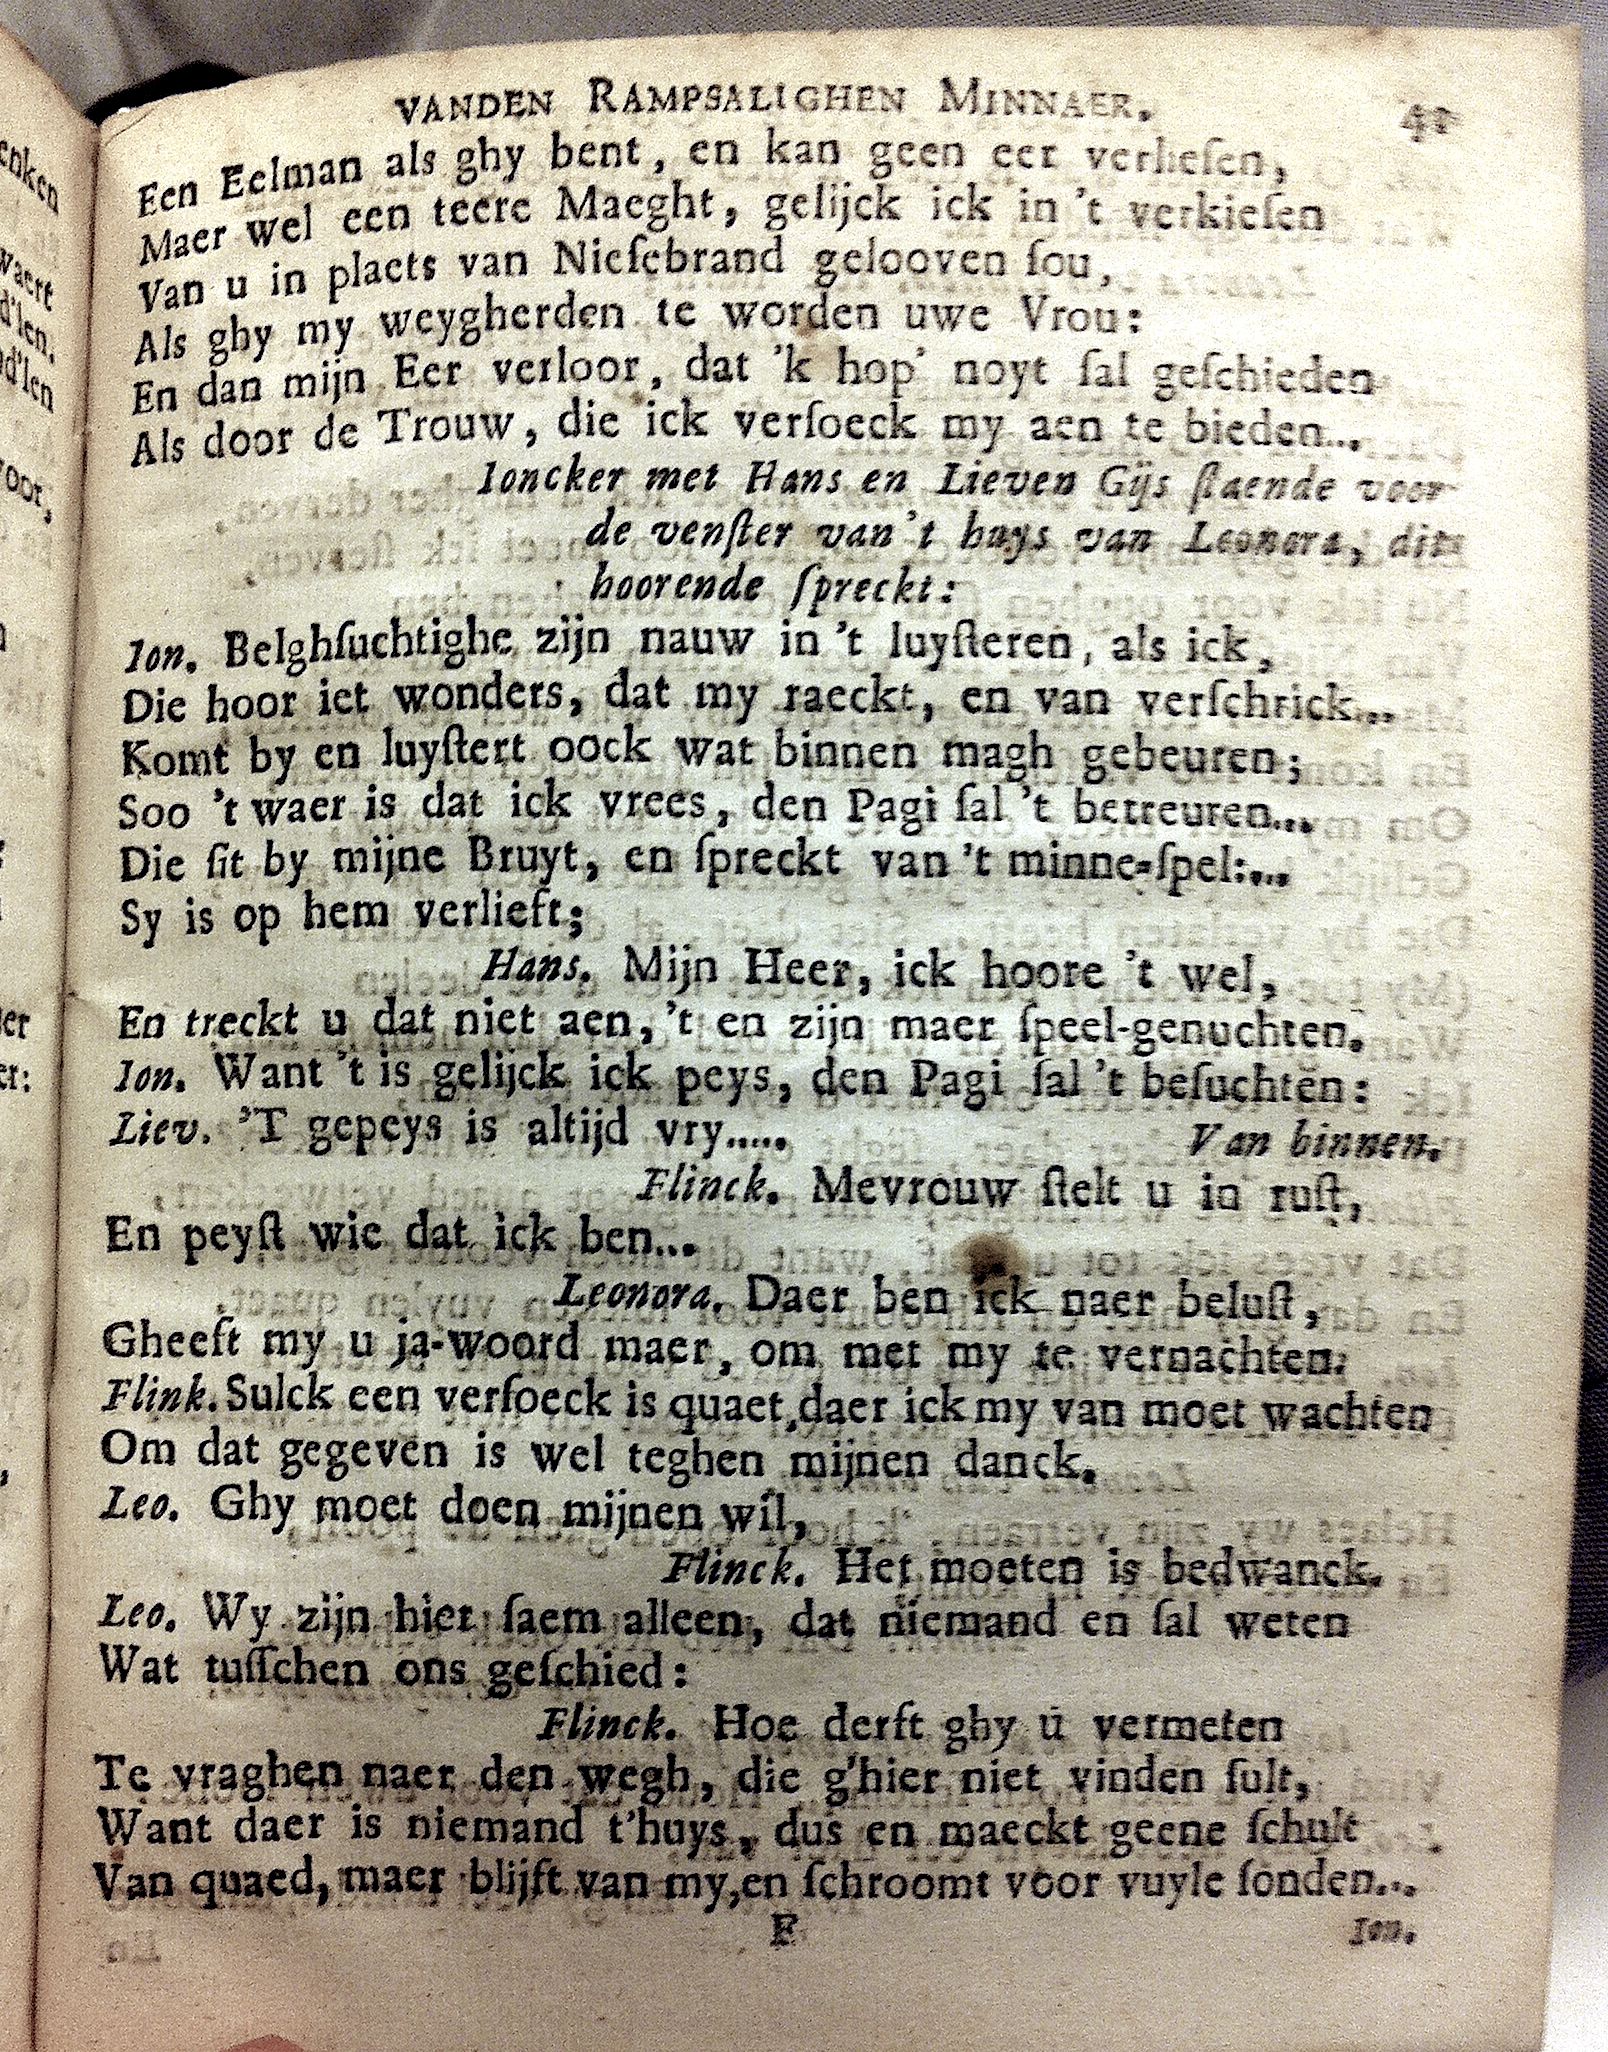 VANDEN RAMPSALIGHEN MINNAER. 41
Een Eelman als ghy bent, en kan geen eer verlieſen,
Maer wel een teere Maeght, gelijck ick in 't verkieſen
Van u in plaets van Nieſebrand gelooven ſou,
Als ghy my weygherden te worden uwe Vrou:
En dan mijn Eer verloor, dat 'k hop' noyt ſal geſchieden
Als door de Trouw, die ick verſoeck my aen te bieden...
Ioncker met Hans en Lieven Gijs ſtaende voor
de venſter van 't huys van Leonora, dit
hoorende ſpreckt:
Ion. Belghſuchtighe zijn nauw in 't luyſteren, als ick,
Die hoor iet wonders, dat my raeckt, en van verſchrick...
Komt by en luyſtert oock wat binnen magh gebeuren;
Soo 't waer is dat ick vrees, den Pagi ſal 't betreuren...
Die ſit by mijne Bruyt, en ſpreckt van 't minne-ſpel:...
Sy is op hem verlieft;
Hans. Mijn Heer, ick hoore 't wel,
En treckt u dat niet aen, 't en zijn maer ſpeel-genuchten.
Ion. Want 't is gelijck ick peys, den Pagi ſal 't beſuchten:
Liev. 'T gepeys is altijd vry..... Van binnen.
Flinck. Mevrouw ſtelt u in ruſt,
En peyſt wie dat ick ben...
Leonora. Daer ben ick naer beluſt,
Gheeft my u ja-woord maer, om met my te vernachten.
Flink. Sulck een verſoeck is quaet, daer ick my van moet wachten
Om dat gegeven is wel teghen mijnen danck.
Leo. Ghy moet doen mijnen wil,
Flinck. Het moeten is bedwanck.
Leo. Wy zijn hier ſaem alleen, dat niemand en ſal weten
Wat tuſſchen ons geſchied:
Flinck. Hoe derft ghy u vermeten
Te vraghen naer den wegh, die g'hier niet vinden ſult,
Want daer is niemand t'huys, dus en maeckt geene ſchult
Van quaed, maer blijft van my, en ſchroomt voor vuyle ſonden...
F Ion.